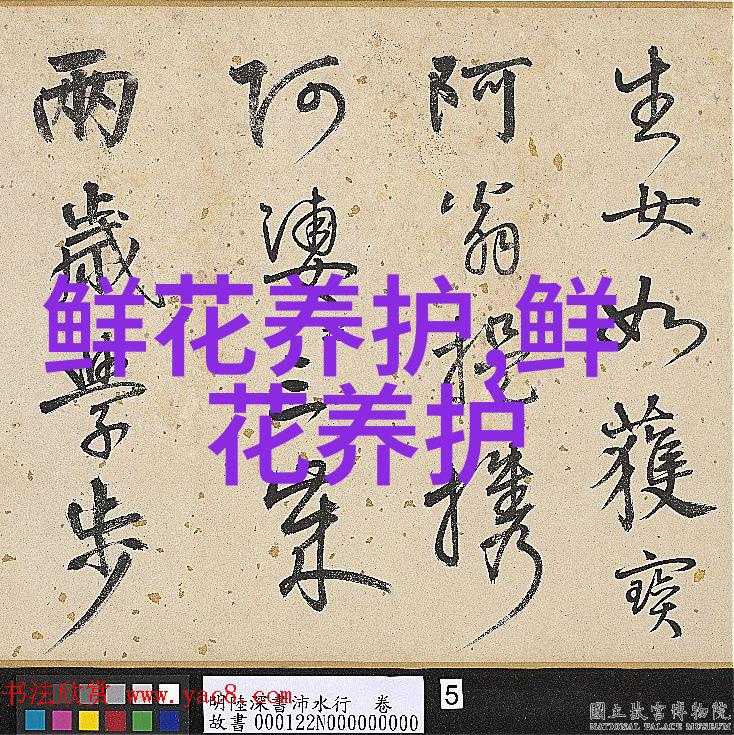 生女如獲寶
阿翁提攜
阿婆
兩歲學步
鲜花养护,鲜
花养护
书法欣赏 www.yac8.com
明陸深書沛水行 卷
故書 000122N000000000
5
國立故宮博物院
NATIONAL PALACE MUSEUM